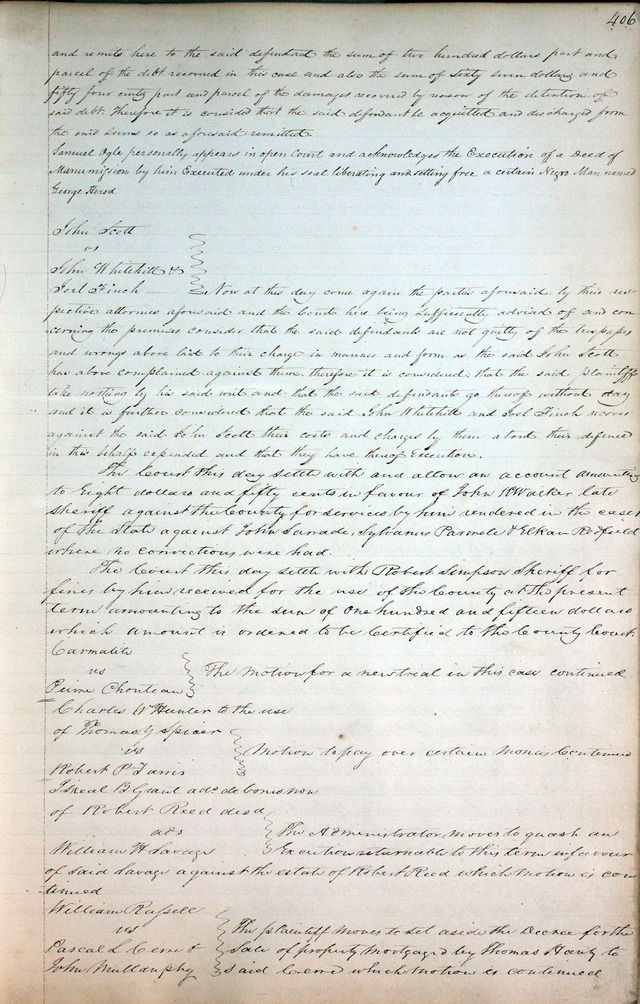 406
and remits here to the said defendant the sum of two hundred dollars part and
parcel of the debt recovered in this case and also the sum of sixty seven dollars and
fifty four cents part and parcel of the damages recovered by reason of the detention of
said debt. Therefore it is considered that the said defendant be acquitted and discharged from
the said sums so as aforesaid remitted.
Samuel Ogle personally appears in open Court and acknowledges the Execution of a Deed of
Manumission by him Executed under his seal liberating and setting free a certain Negro Man named
George Herod
John Scott
vs
John Whitehill &
Joel Finch Now at this day come again the parties aforesaid by their res-
pective attornies aforesaid and the Court here being sufficiently advised of and con
cerning the premises consider that the said defendants are not guilty of the trespasses
and wrongs above laid to their charge in manner and form as the said John Scott
has above complained against them. therefore it is considered that the said plaintiff
take nothing by his said writ and that the said defendants go thereof without day
and it is further considered that the said John Whitehill and Joel Finch recover
against the said John Scott their costs and charges by them about their defence
in this behalf expended and that they have thereof Execution.
The Court this day settle with and allow an account amounting
to Eight dollars and fifty cents in favour of John K Walker late
sheriff against the County for services by him rendered in the cases
of The State against John Larrade, Sylvanus Parmele & Elkan Redfield
where no convictions were had.
The Court this day settle with Robert Simpson Sheriff for
fines by him received for the use of the County at the present
term amounting to the sum of One hundred and fifteen dollars
which amount is ordered to be Certified to the County Court.
Carmalite
vs
Peirre Chouteau The Motion for a new trial in this case continued
Charles W Hunter to the use
of Thomas G Spicer
vs Motion to pay over certain Monies Continued
Robert P Farris
Iskeal B Grant adr. de bonis non
of Robert Reed decd
ads The Administrator moves to quash an
William H Savage Execution returnable to this term in favour
of said Savage against the estate of Robert Reed which Motion is con
tinued
William Russell
vs The plaintiff Moves to set aside the Decree for the
Pascal L Cerre & Sale of property Mortgaged by Thomas Hanly to
John Mullanphy said Cerre which Motion is continued